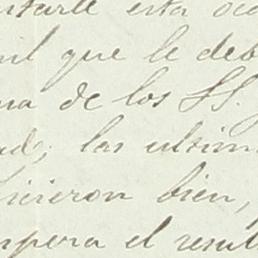 ntarle esta oca
mil que le deb
na de los SS.
ad; las ultim
hicieron bien,
mpera el resul